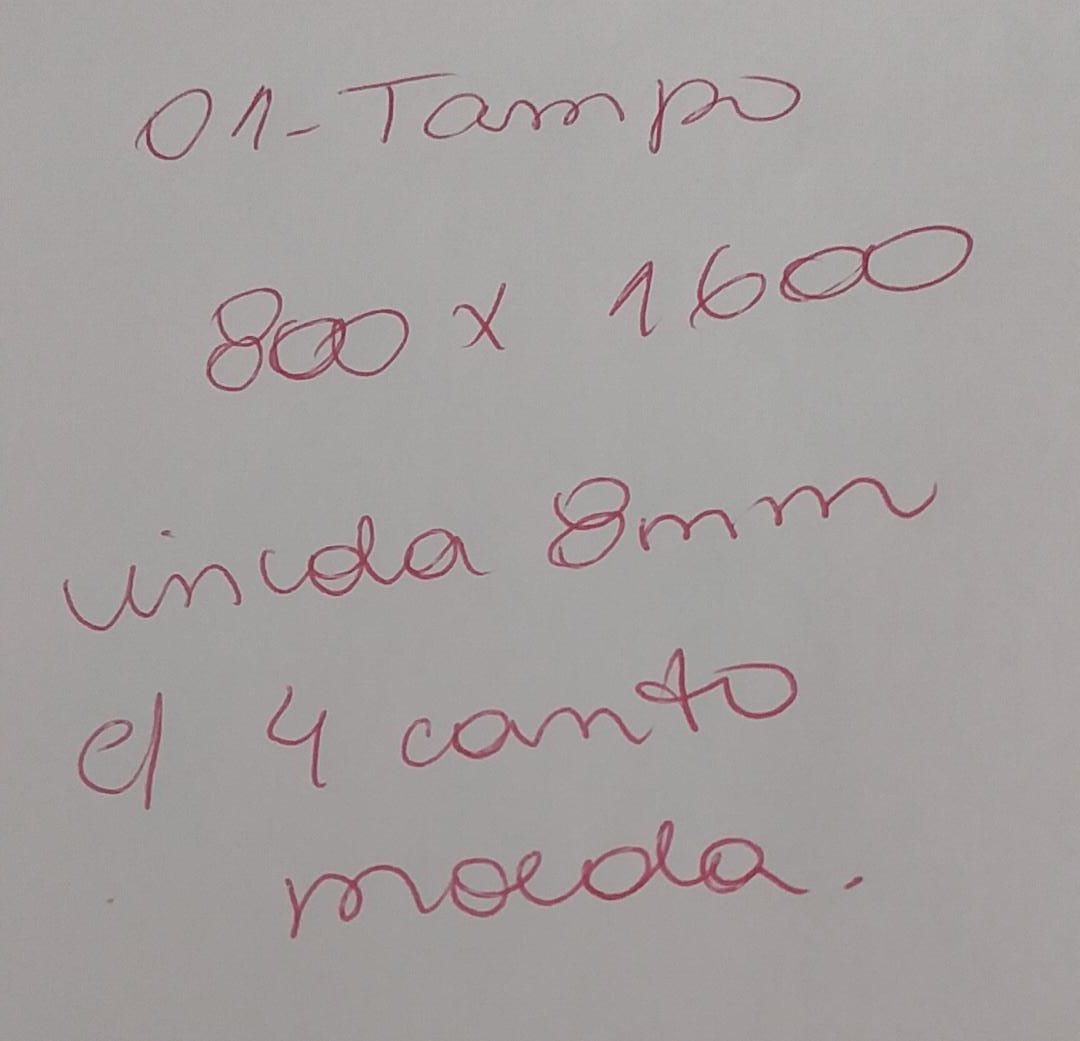 01-Tampo
800 x 1600
incda 8mm
c/ 4 canto
moeda.